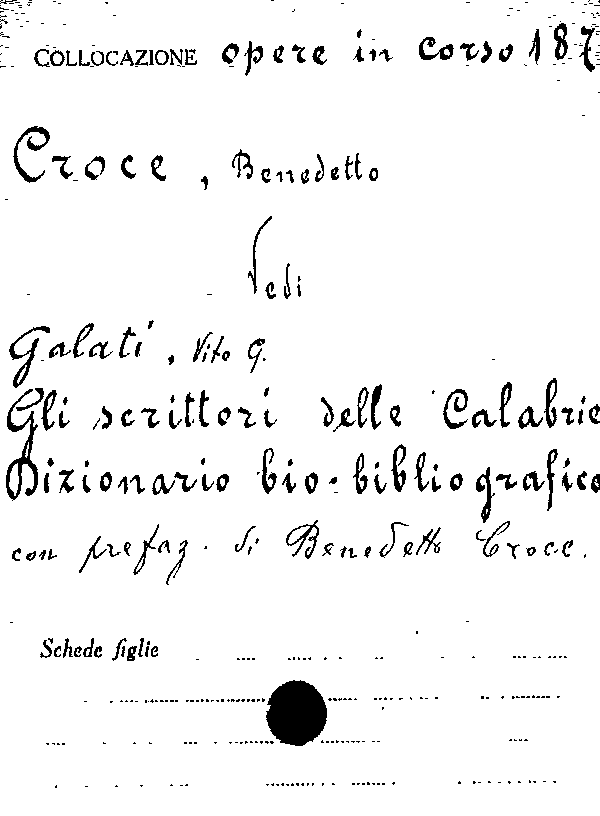 COLLOCAZIONE opere in corso 187
Croce, Benedetto
Vedi
Galati, Vito G.
Gli scrittori delle Calabrie
Dizionario bio-bibliografico
con prefaz. di Benedetto Croce.
Schede figlie